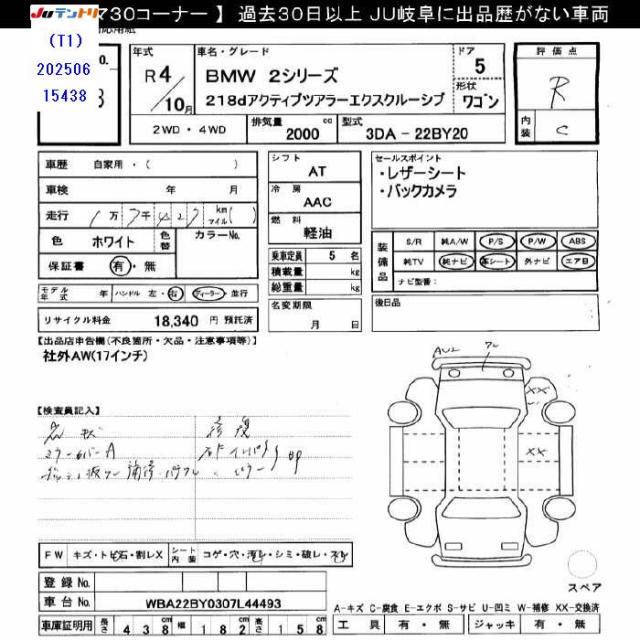 JUテントリ
マ30コーナー 】 過去30日以上 JU岐阜に出品歴がない車両
(T1)
202506
15438
年式
R 4 / 10月
車名・グレード
BMW 2シリーズ
218dアクティブツアラーエクスクルーシブ
ドア
5
形状
ワゴン
評価点
R
内装
C
2WD ・ 4WD
排気量
2000 cc
型式
3DA - 22BY20
車歴 自家用・( )
車検 年 月
走行 1万7千427 km マイル( )
色 ホワイト 色替 カラーNo.
保証書 有・無
シフト
AT
冷房
AAC
燃料
軽油
乗車定員 5 名
積載量 kg
総重量 kg
セールスポイント
・レザーシート
・バックカメラ
装備品
S/R 純A/W P/S P/W ABS
純TV 純ナビ 革シート 外ナビ エアB
ナビ型番：
モデル年式 年 ハンドル 左・右 ディーラー・並行
リサイクル料金 18,340 円 預託済
名変期限
月 日
後日品
【出品店申告欄(不良箇所・欠品・注意事項等)】
社外AW(17インチ)
【検査員記入】
修復
AU2
XX
XX
FW キズ・トビ石・割レX シート内装 コゲ・穴・汚レ・シミ・破レ・スレ
登録 No.
車台 No. WBA22BY0307L44493
車庫証明用 長さ 438 幅 182 高さ 158
スペア
A-キズ C-腐食 E-エクボ S-サビ U-凹ミ W-補修 XX-交換済
工具 有・無 ジャッキ 有・無